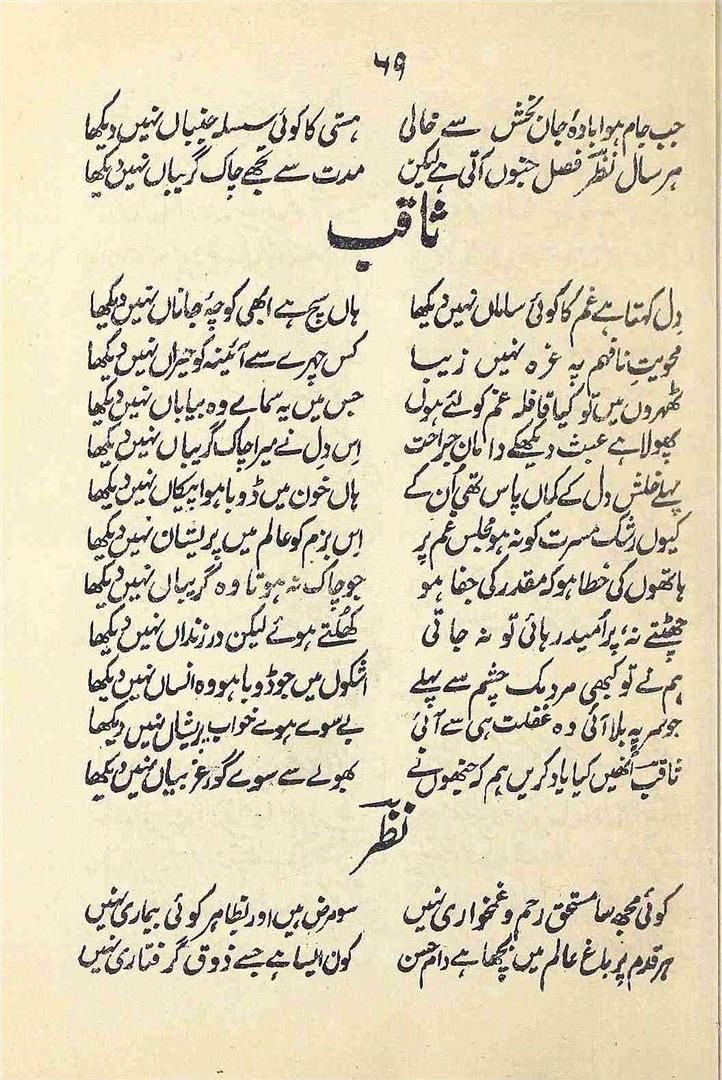 ۶۹
جب جام ہوا بادۂ جان بخش سے خالی ہستی کا کوئی سلسلہ جنباں نہیں دیکھا
ہر سال نظرؔ فصل جنوں آتی ہے لیکن مدت سے تجھے چاک گریباں نہیں دیکھا
ثاقب
دِل کہتا ہے غم کا کوئی ساماں نہیں دیکھا ہاں سچ ہے ابھی کوچۂ جاناں نہیں دیکھا
محویتِ نافہم پہ غرہ نہیں زیبا کس چہرے سے آئینہ کو حیراں نہیں دیکھا
ٹھہروں میں تو کیا قافلہ غم کو لئے ہوں جس میں یہ سماے وہ بیاباں نہیں دیکھا
پھولا ہے عبث دیکھکے دامان جراحت اِس دِل نے میرا چاک گریباں نہیں دیکھا
پہلے خلش دل کے کماں پاس تھی اُن کے ہاں خون میں ڈوبا ہوا پیکاں نہیں دیکھا
کیوں رشک مسرت کو نہ ہو مجلس غم پر اِس بزم کو عالم میں پریشان نہیں دیکھا
ہاتھوں کی خطا ہو کہ مقدر کی جفا ہو جو چاک نہ ہوتا وہ گریباں نہیں دیکھا
چھٹتے نہ، پر اُمید رہائی تو نہ جاتی کھُلتے ہوئے لیکن در زنداں نہیں دیکھا
ہم نے تو کبھی مردمک چشم سے پہلے اشکوں میں جو ڈوبا ہو وہ انساں نہیں دیکھا
جو سر پہ بلا آئی وہ غفلت ہی سے آئی بے سوے ہوے خواب پریشاں نہیں دیکھا
ثاقبؔ اُنھیں کیا یاد کریں ہم کہ جنھوں نے بھولے سے سوے گور غریباں نہیں دیکھا
نظرؔ
کوئی مجھ سا مستحق رحم و غمخواری نہیں سو مرض ہیں اور بظاہر کوئی بیماری نہیں
ہر قدم پر باغ عالم میں بچھا ہے دام حسن کون ایسا ہے جسے ذوق گرفتاری نہیں